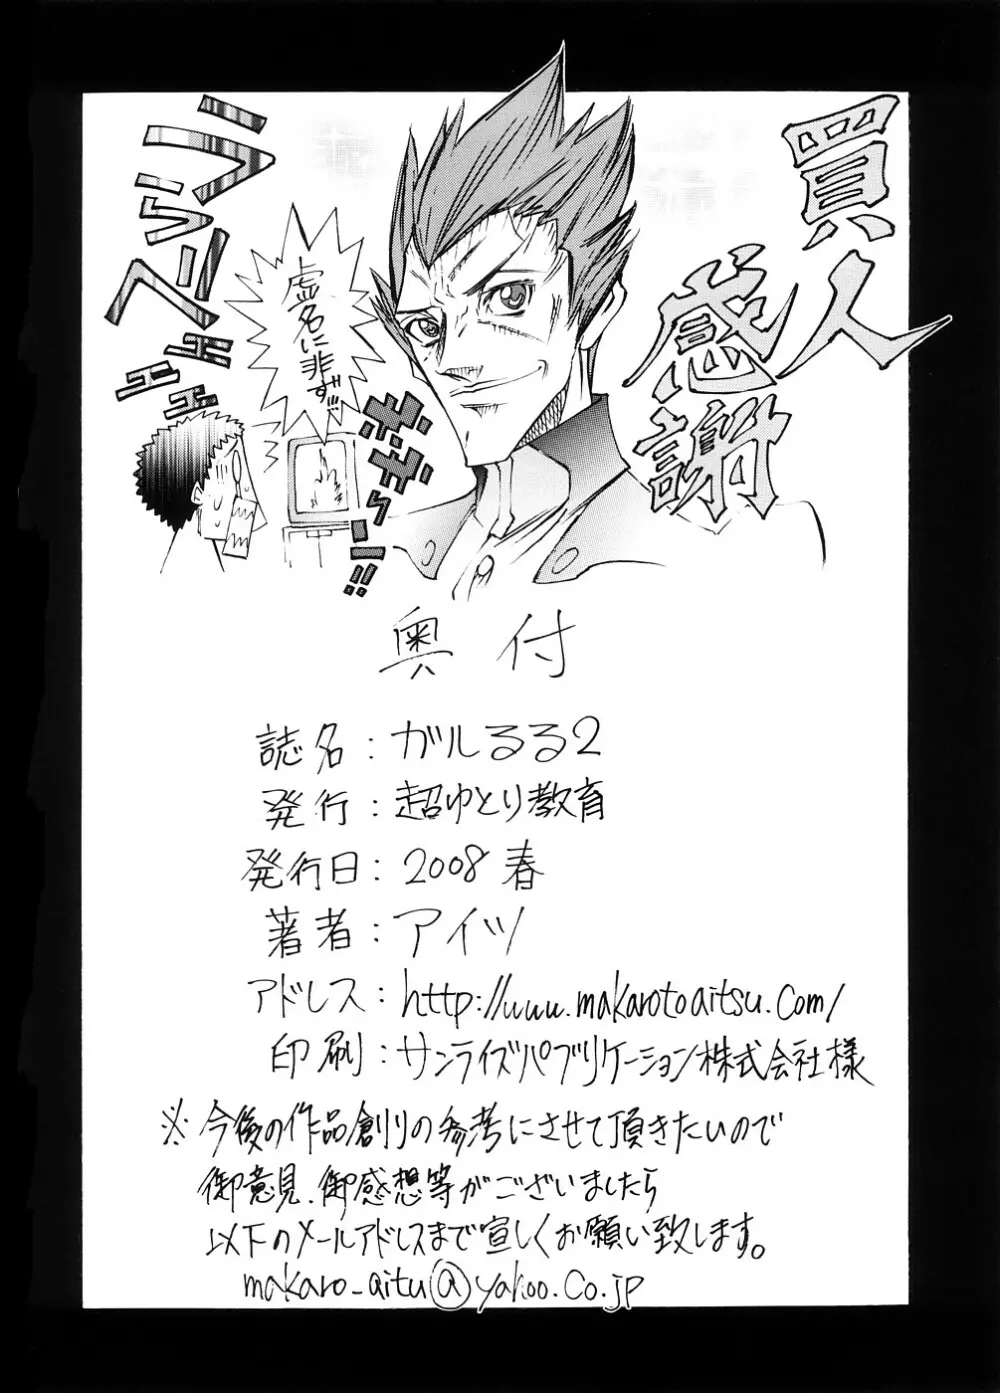 買人
感謝
虚名に非ず…
ララァらベべエエエエ
ギンデぇーー!!!
奥付
誌名：ガルるる2
発行：超ゆとり教育
発行日：2008 春
著者：アイツ
アドレス：http://www.makarotoaitsu.com/
印刷：サンライズパブリケーション株式会社様
※今後の作品創りの参考にさせて頂きたいので
御意見、御感想等がございましたら
以下のメールアドレスまで宜しくお願い致します。
makaro_aitu@yahoo.co.jp